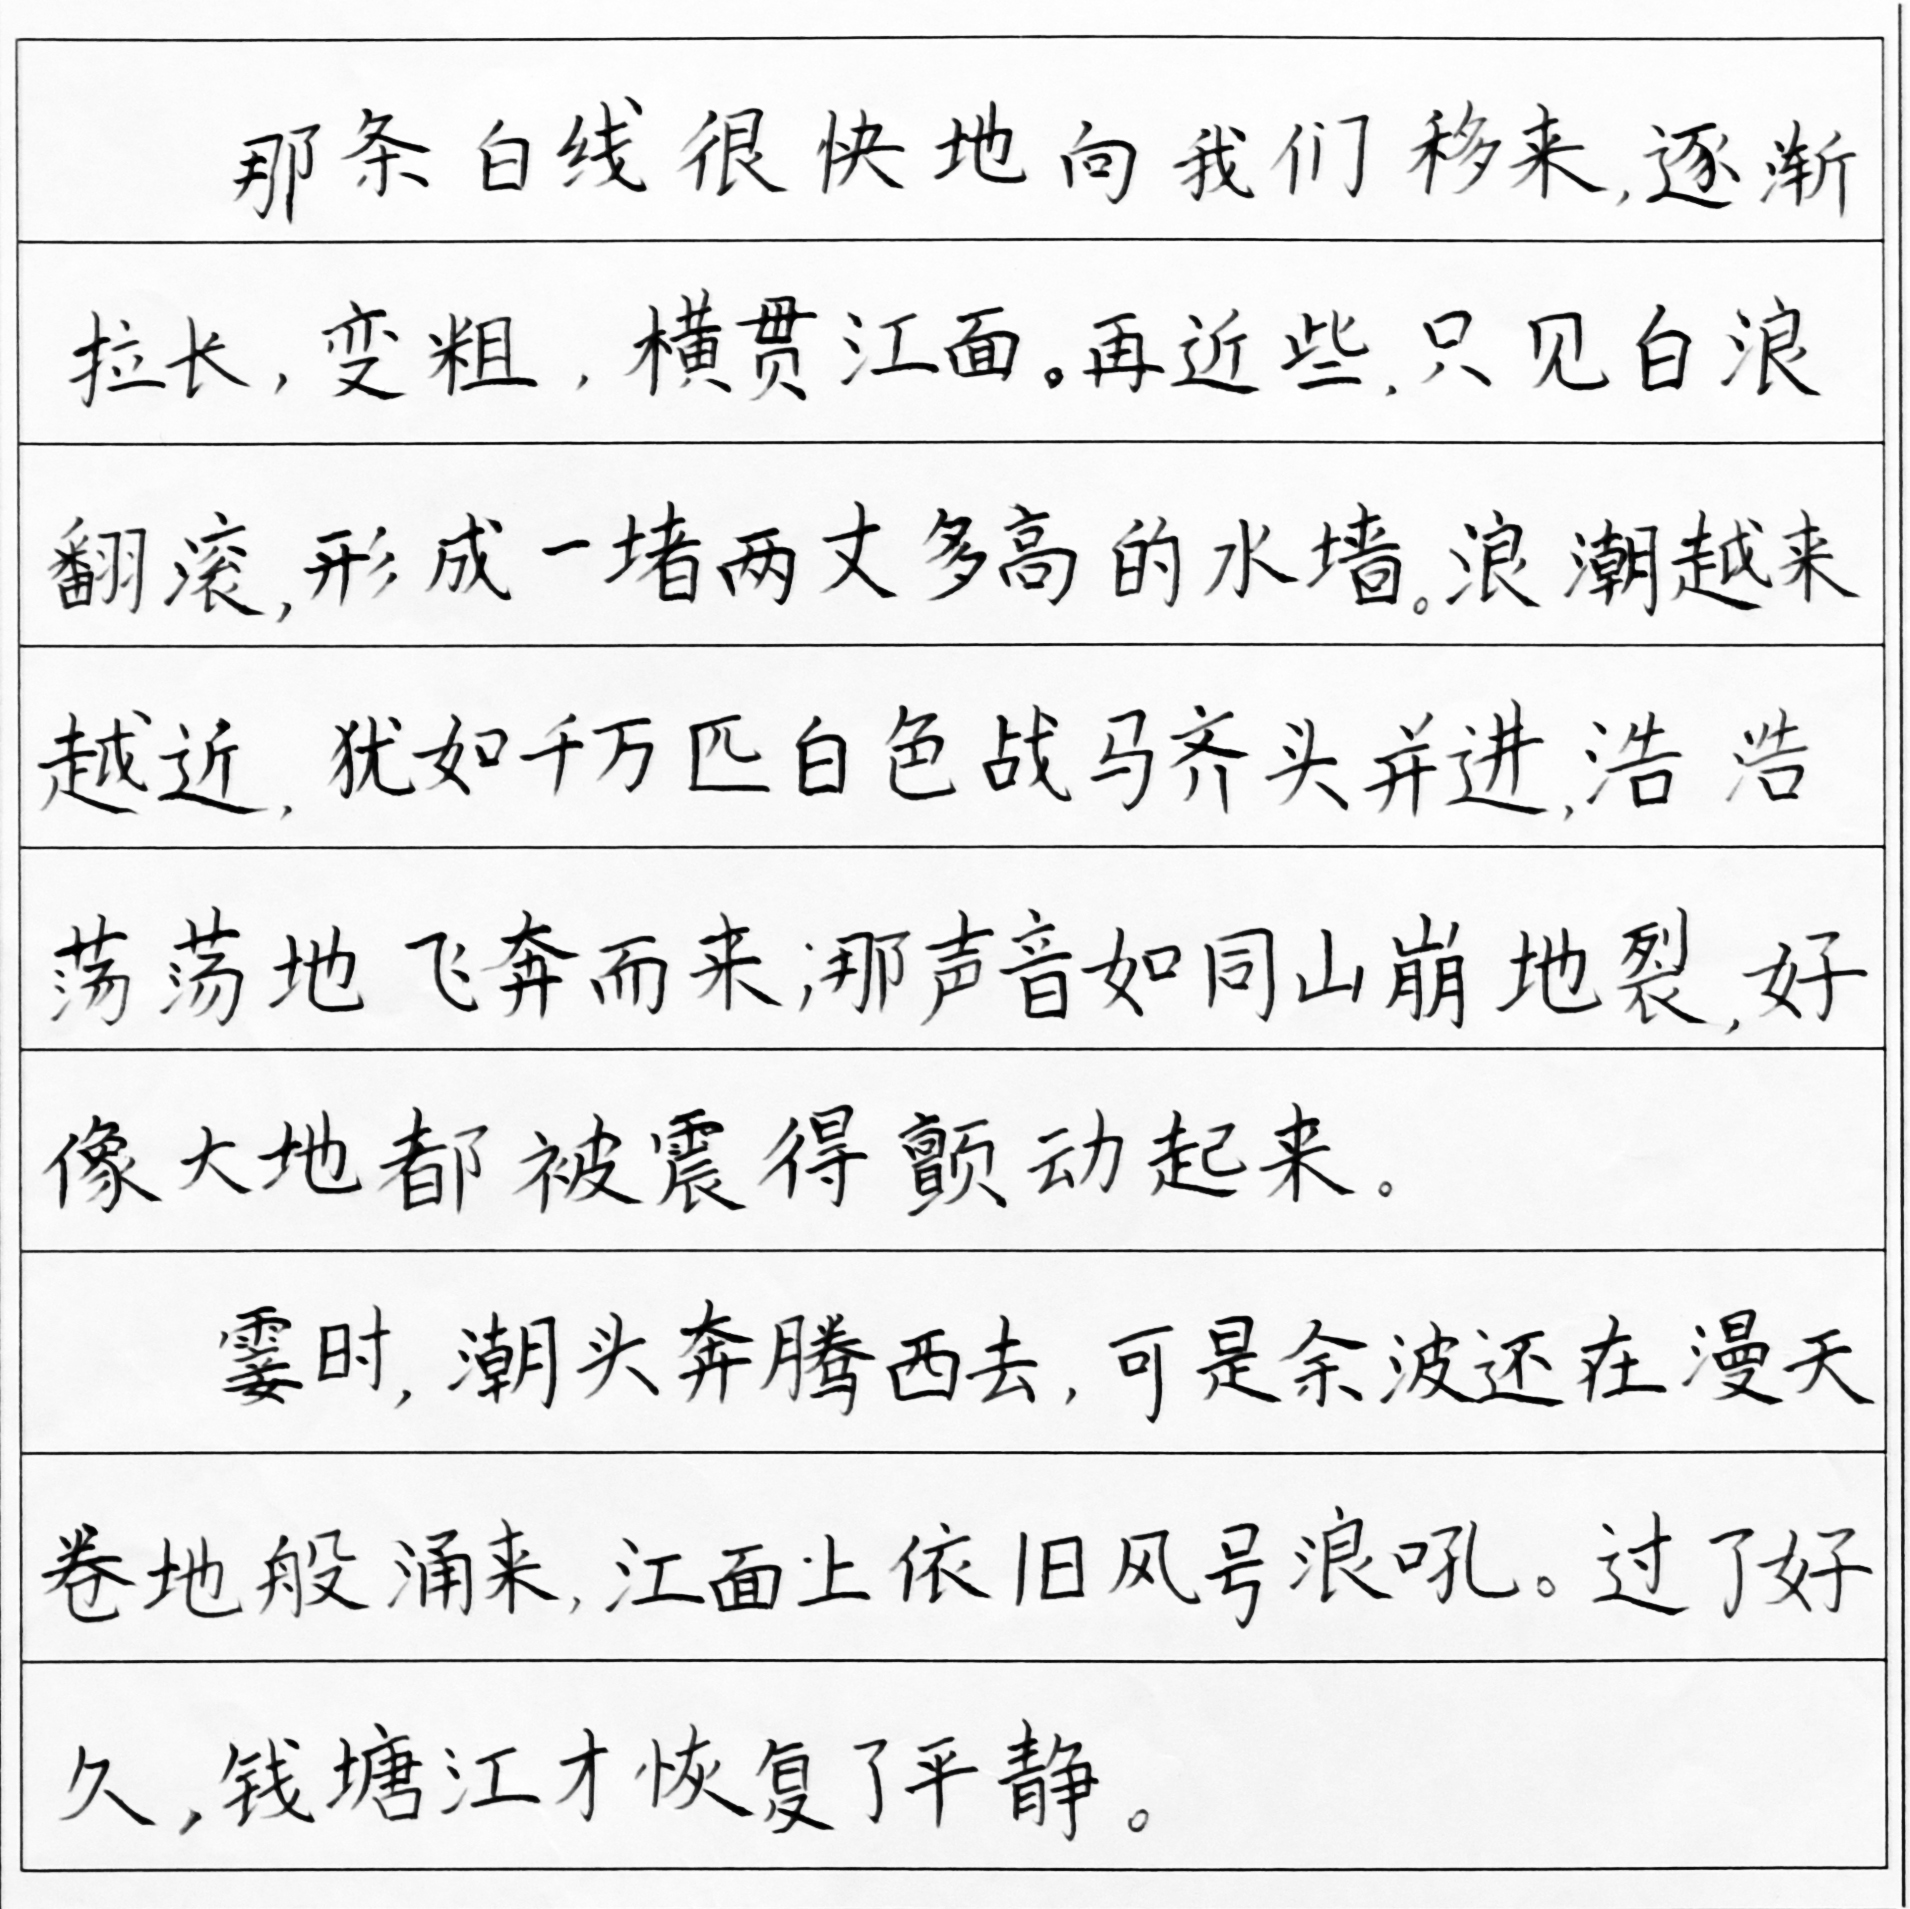 那条白线很快地向我们移来,逐渐
拉长,变粗,横贯江面。再近些,只见白浪
翻滚,形成一堵两丈多高的水墙。浪潮越来
越近,犹如千万匹白色战马齐头并进,浩浩
荡荡地飞奔而来;那声音如同山崩地裂,好
像大地都被震得颤动起来。
霎时,潮头奔腾西去,可是余波还在漫天
卷地般涌来,江面上依旧风号浪吼。过了好
久,钱塘江才恢复了平静。